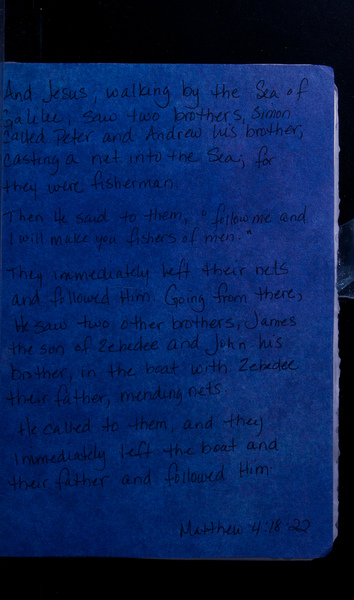 And Jesus, walking by the Sea of
Galilee, saw two brothers, Simon
called Peter and Andrew his brother,
casting a net into the Sea; for
they were fisherman.
Then He said to them, "follow me and
I will make you fishers of men."
They immediately left their nets
and followed Him. Going from there,
He saw two other brothers, James
the son of Zebedee and John his
brother, in the boat with Zebedee
their father, mending nets.
He called to them, and they
immediately left the boat and
their father and followed Him.
Matthew 4:18-22